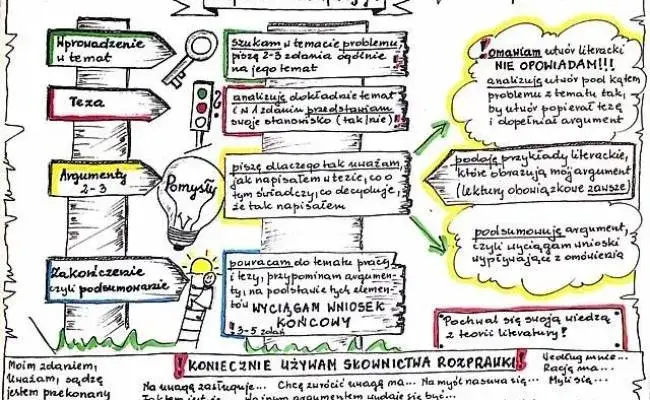 Wprowadzenie
w temat
szukam w temacie problemu,
piszę 2-3 zdania ogólnie
na jego temat
Teza
analizuję dokładnie temat
i w 1 zdaniu przedstawiam
swoje stanowisko (tak/nie)
Argumenty
2-3
Pomysły
piszę dlaczego tak uważam,
jak napisałem w tezie, co o
tym świadczy, co decyduje,
że tak napisałem
! omawiam utwór literacki
NIE OPOWIADAM!!!
analizuję utwór pod kątem
problemu z tematu tak,
by utwór popierał tezę
i dopełniał argument
podaję przykłady literackie,
które obrazują mój argument
(lektury obowiązkowe zawsze)
podsumowuję argument,
czyli wyciągam wnioski
wypływające z omówienia
Zakończenie
czyli podsumowanie
powracam do tematu pracy
i tezy, przypominam argumen-
ty, na podstawie tych elemen-
tów WYCIĄGAM WNIOSEK
KOŃCOWY
! 3-5 zdań
Pochwal się swoją wiedzą
z teorii literatury!
! KONIECZNIE UŻYWAM SŁOWNICTWA ROZPRAWKI!
Moim zdaniem,
Uważam, sądzę
jestem przekonany
Na uwagę zasługuje... Chcę zwrócić uwagę na... Na myśl nasuwa się...
Według mnie...
Rację ma...
Myślę...
Innym argumentem wydaje się być...